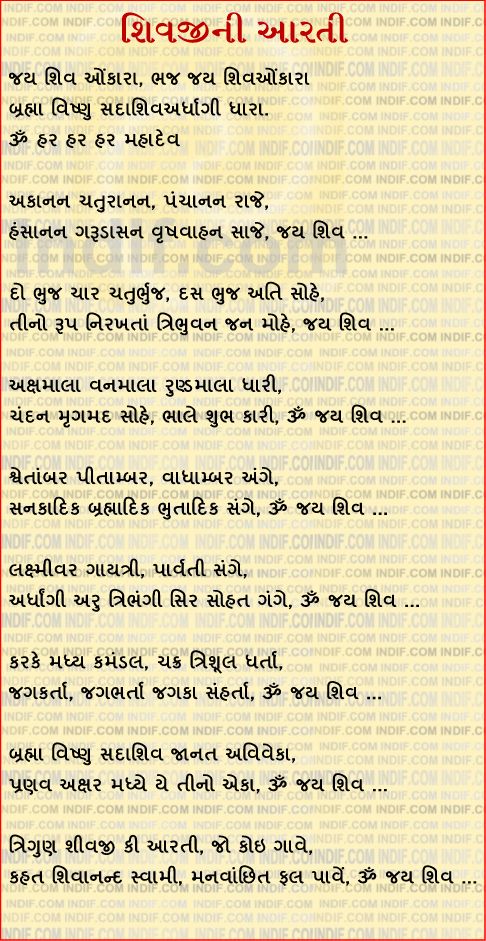 શિવજીની આરતી
જય શિવ ઓંકારા, ભજ જય શિવઓંકારા
બ્રહ્મા વિષ્ણુ સદાશિવઅર્ધાગી ધારા.
ૐ હર હર હર મહાદેવ
અકાનન ચતુરાનન, પંચાનન રાજે,
હંસાનન ગરૂડાસન વૃષવાહન સાજે, જય શિવ ...
દો ભુજ ચાર ચતુર્ભુજ, દસ ભુજ અતિ સોહે,
તીનો રૂપ નિરખતાં ત્રિભુવન જન મોહે, જય શિવ ...
અક્ષમાલા વનમાલા રુણ્ડમાલા ધારી,
ચંદન મૃગમદ સોહે, ભાલે શુભ કારી, ૐ જય શિવ ...
શ્વેતાંબર પીતામ્બર, વાધામ્બર અંગે,
સનકાદિક બ્રહ્માદિક ભુતાદિક સંગે, ૐ જય શિવ ...
લક્ષ્મીવર ગાયત્રી, પાર્વતી સંગે,
અર્ધાંગી અરુ ત્રિભંગી સિર સોહત ગંગે, ૐ જય શિવ ...
કરકે મધ્ય કમંડલ, ચક્ર ત્રિશૂલ ધર્તા,
જગકર્તા, જગભર્તા જગકા સંહર્તા, ૐ જય શિવ ...
બ્રહ્મા વિષ્ણુ સદાશિવ જાનત અવિવેકા,
પ્રણવ અક્ષર મધ્યે યે તીનો એકા, ૐ જય શિવ ...
ત્રિગુણ શીવજી કી આરતી, જો કોઇ ગાવે,
કહત શિવાનન્દ સ્વામી, મનવાંછિત ફલ પાવેં, ૐ જય શિવ ...
Indif.com